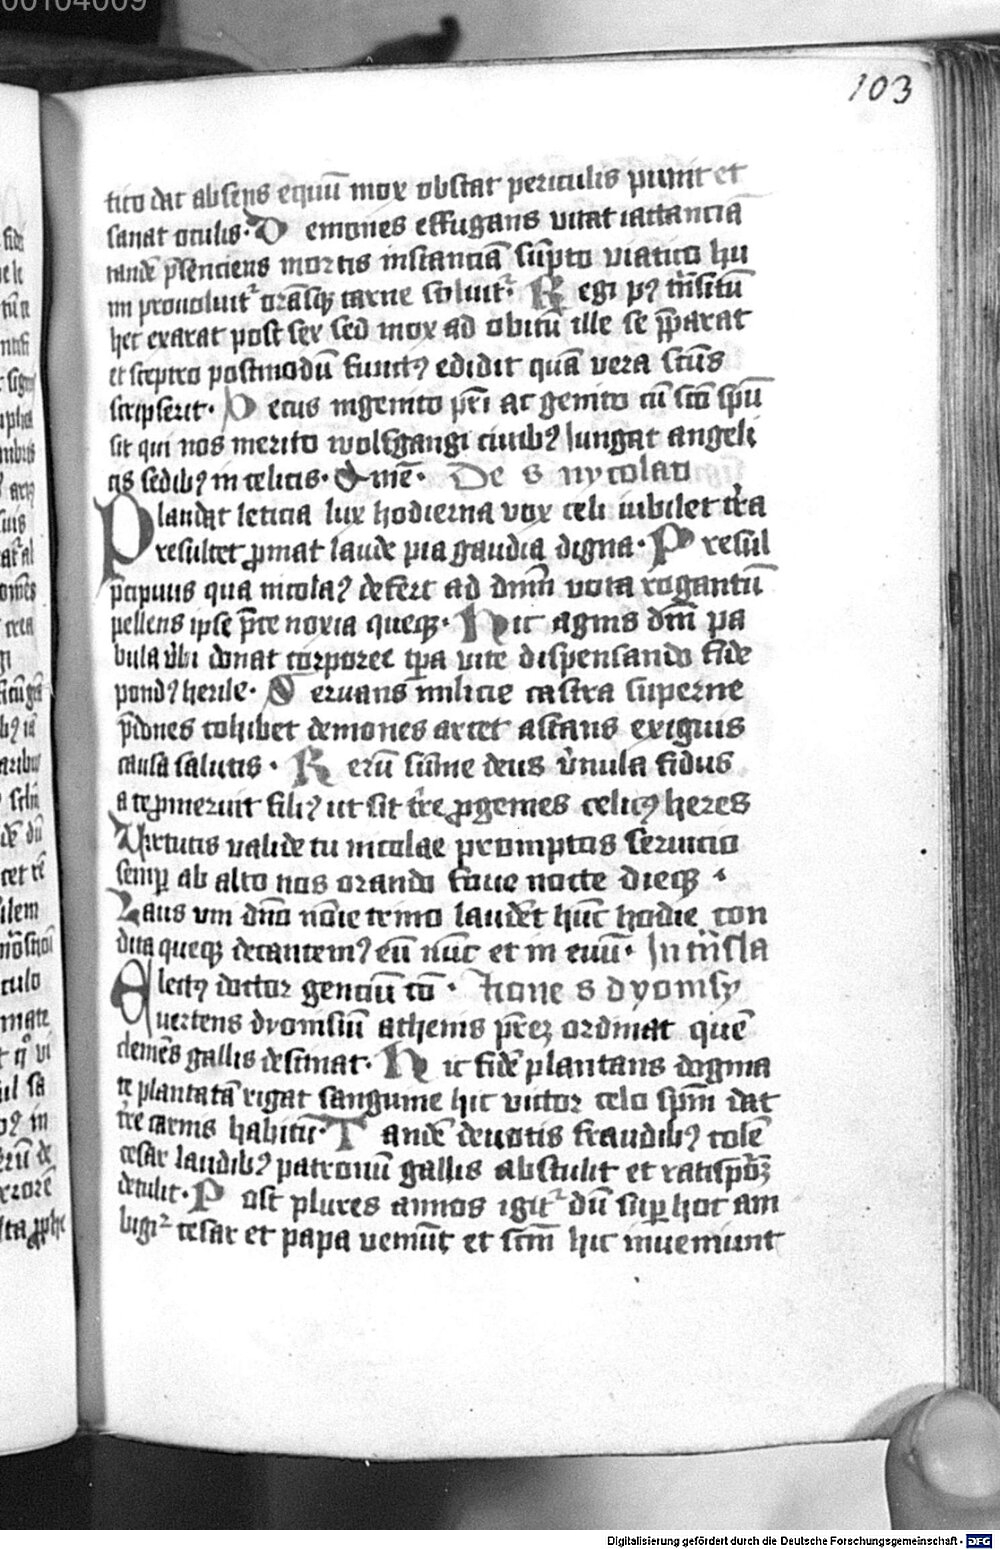 00104009
103
tico dat absens equū mox obstat periculis punit et
sanat oculis. Demones effugans vitat iactanciā
tandē p̄senciens mortis instanciā sūpto viatico hu
mi prouoluit᷑ orās carne soluit᷑. Regi pꝰ trāsitū
hec exarat post sex sed mox ad obitū ille se p̄parat
et sceptro postmodū functꝰ edidit quā vera scūs
scripserit. Decus ingenito pr̄i ac genito cū sc̄o spū
sit qui nos merito wolfgangi ciuibꝰ iungat angeli
cis sedibꝰ in celicis. Amē. De s nycolao
Plaudat leticia lux hodierna vox celi iubilet tr̄a
resultet ꝓmat laude pia gaudia digna. Presul
p̄cipuus qua nicolaꝰ defert ad dm̄ vota rogantū
pellens ipse p̄ce noxia queqꝫ. Hic agnis dm̄ pa
bula vbi donat corporee tp̄a vite dispensando fide
pondꝰ herile. Seruans milicie castra superne
p̄dones cohibet demones arcet astans exiguis
causa salutis. Rerū sūme deus v̄nula fidus
a te ꝓmeruit filiꝰ ut sit tr̄e ꝓgenies celicꝰ heres
Virtutis valide tu nicolae promptos seruicio
semꝑ ab alto nos orando foue nocte dieqꝫ.
Laus vni dn̄o nōie trino laudēt hūc hodie con
dita queqꝫ decantemꝰ eū nūc et in euū. In trāsla
Electꝰ doctor genciū cō. tione s dyonisy
uertens dyonisiū athenis p̄rez ordinat quē
clemēs gallis destinat. Hic fidē plantans dogma
te plantatā rigat sanguine hic victor celo spm̄ dat
tr̄e carnis habitū. Tandē deuotis fraudibꝰ tolē
cesar laudibꝰ patronū gallis abstulit et ratispōꝫ
detulit. Post plures annos igit᷑ dū suꝑ hoc am
bigi᷑ cesar et papa veniūt et scm̄ hic inueniunt
Digitalisierung gefördert durch die Deutsche Forschungsgemeinschaft - DFG